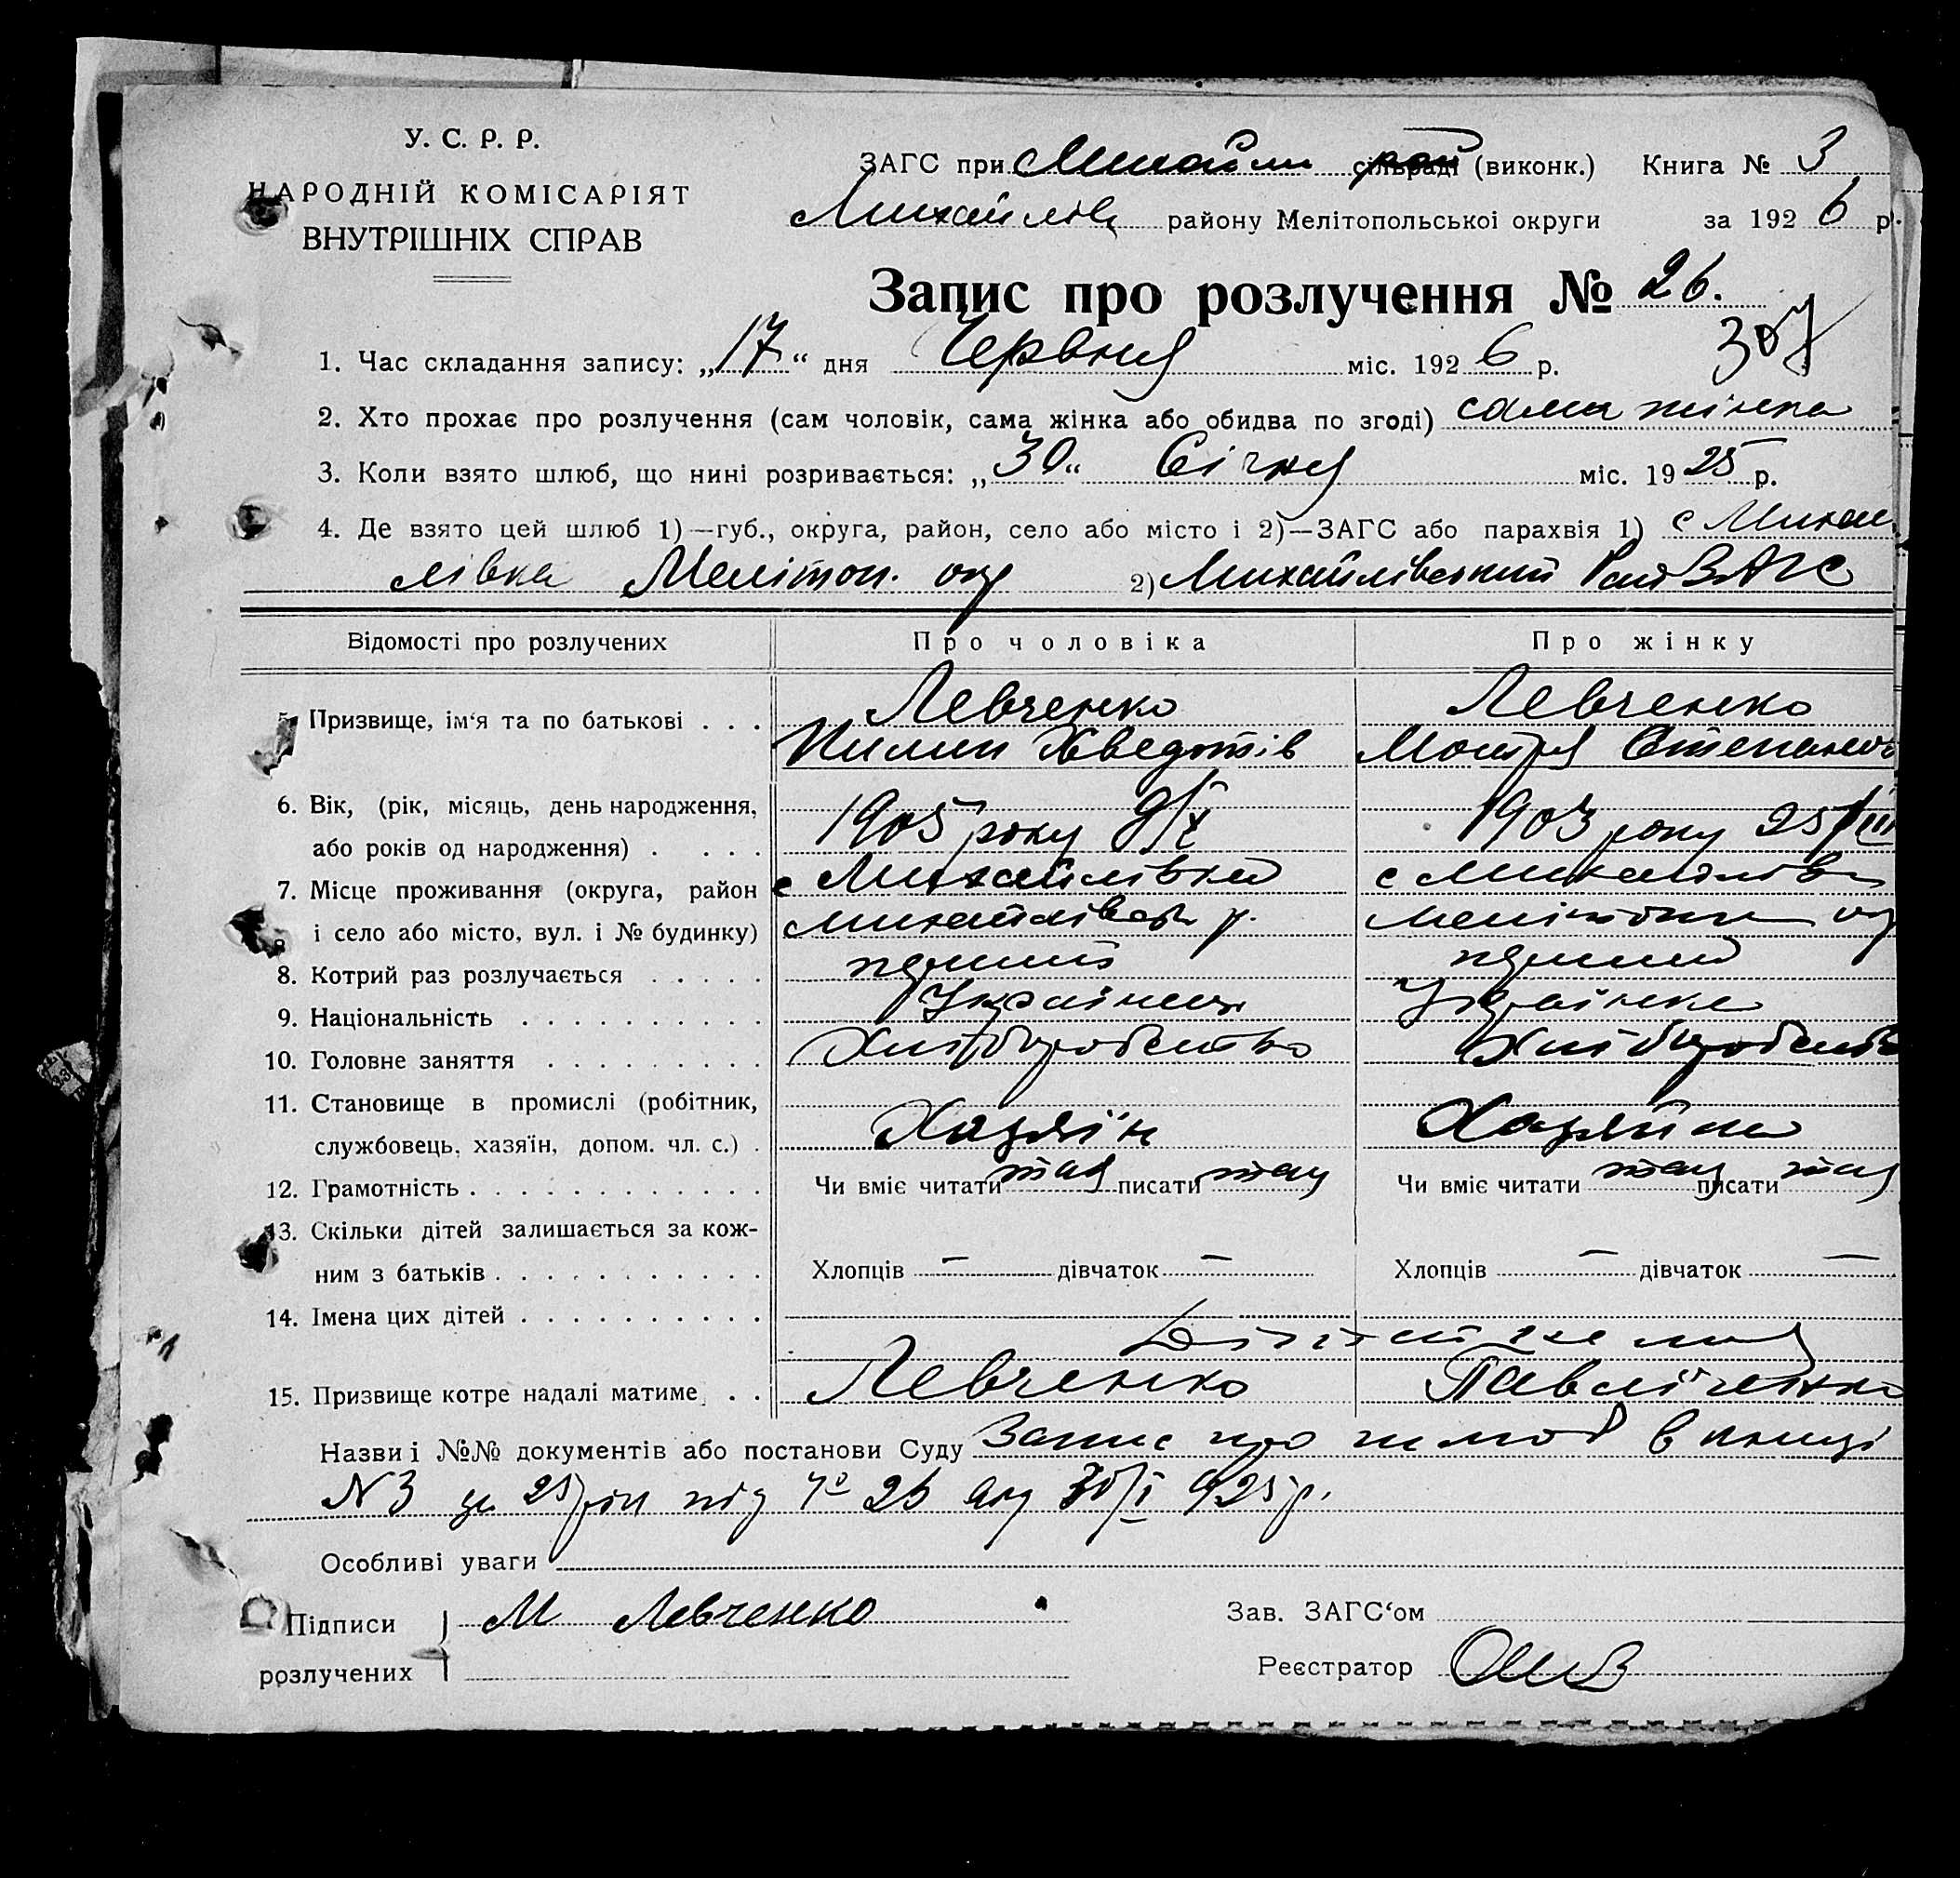 У. С. Р. Р.
НАРОДНІЙ КОМІСАРІЯТ
ВНУТРІШНІХ СПРАВ
ЗАГС при сільраді (виконк.) Книга № 3
Михайлів району Мелітопольської округи за 1926 р.
Запис про розлучення № 26.
307
1. Час складання запису: „17“ дня Червня міс. 1926 р.
2. Хто прохає про розлучення (сам чоловік, сама жінка або обидва по згоді) сама жінка
3. Коли взято шлюб, що нині розривається: „30“ Січня міс. 1925 р.
4. Де взято цей шлюб 1)—губ., округа, район, село або місто і 2)—ЗАГС або парахвія 1) с Михай
лівка Меліт­оп. окр 2) Михайлівський РайЗАГС
Відомості про розлучених Про чоловіка Про жінку
5. Призвище, ім‘я та по батькові . . . Левченко Левченко
Пилип Хведотів Мотря Степанів
6. Вік, (рік, місяць, день народження,
або років од народження) . . . . 1905 року 9/X 1903 року 25/III
7. Місце проживання (округа, район с Михайлівка с Михайлівка
і село або місто, вул. і № будинку) Михайлівськ р. Мелітопи ок
8. Котрий раз розлучається . . . . . перший перший
9. Національність . . . . . . . . . . Українець Українка
10. Головне заняття . . . . . . . . . Хліборобство Хліборобств
11. Становище в промислі (робітник,
службовець, хазяїн, допом. чл. с.) . Хазяїн Хазяйка
12. Грамотність . . . . . . . . . . . . . Чи вміє читати так писати так Чи вміє читати так писати так
13. Скільки дітей залишається за кож-
ним з батьків . . . . . . . . . . . Хлопців — дівчаток — Хлопців — дівчаток —
14. Імена цих дітей . . . . . . . . . .
Дітей немає
15. Призвище котре надалі матиме . . Левченко Павліченко
Назви і №№ документів або постанови Суду Запис про шлюб в книзі
№3 за 25 рік під № 26 від 30/I 925 р.
Особливі уваги
Підписи М Левченко Зав. ЗАГС‘ом
розлучених Реєстратор